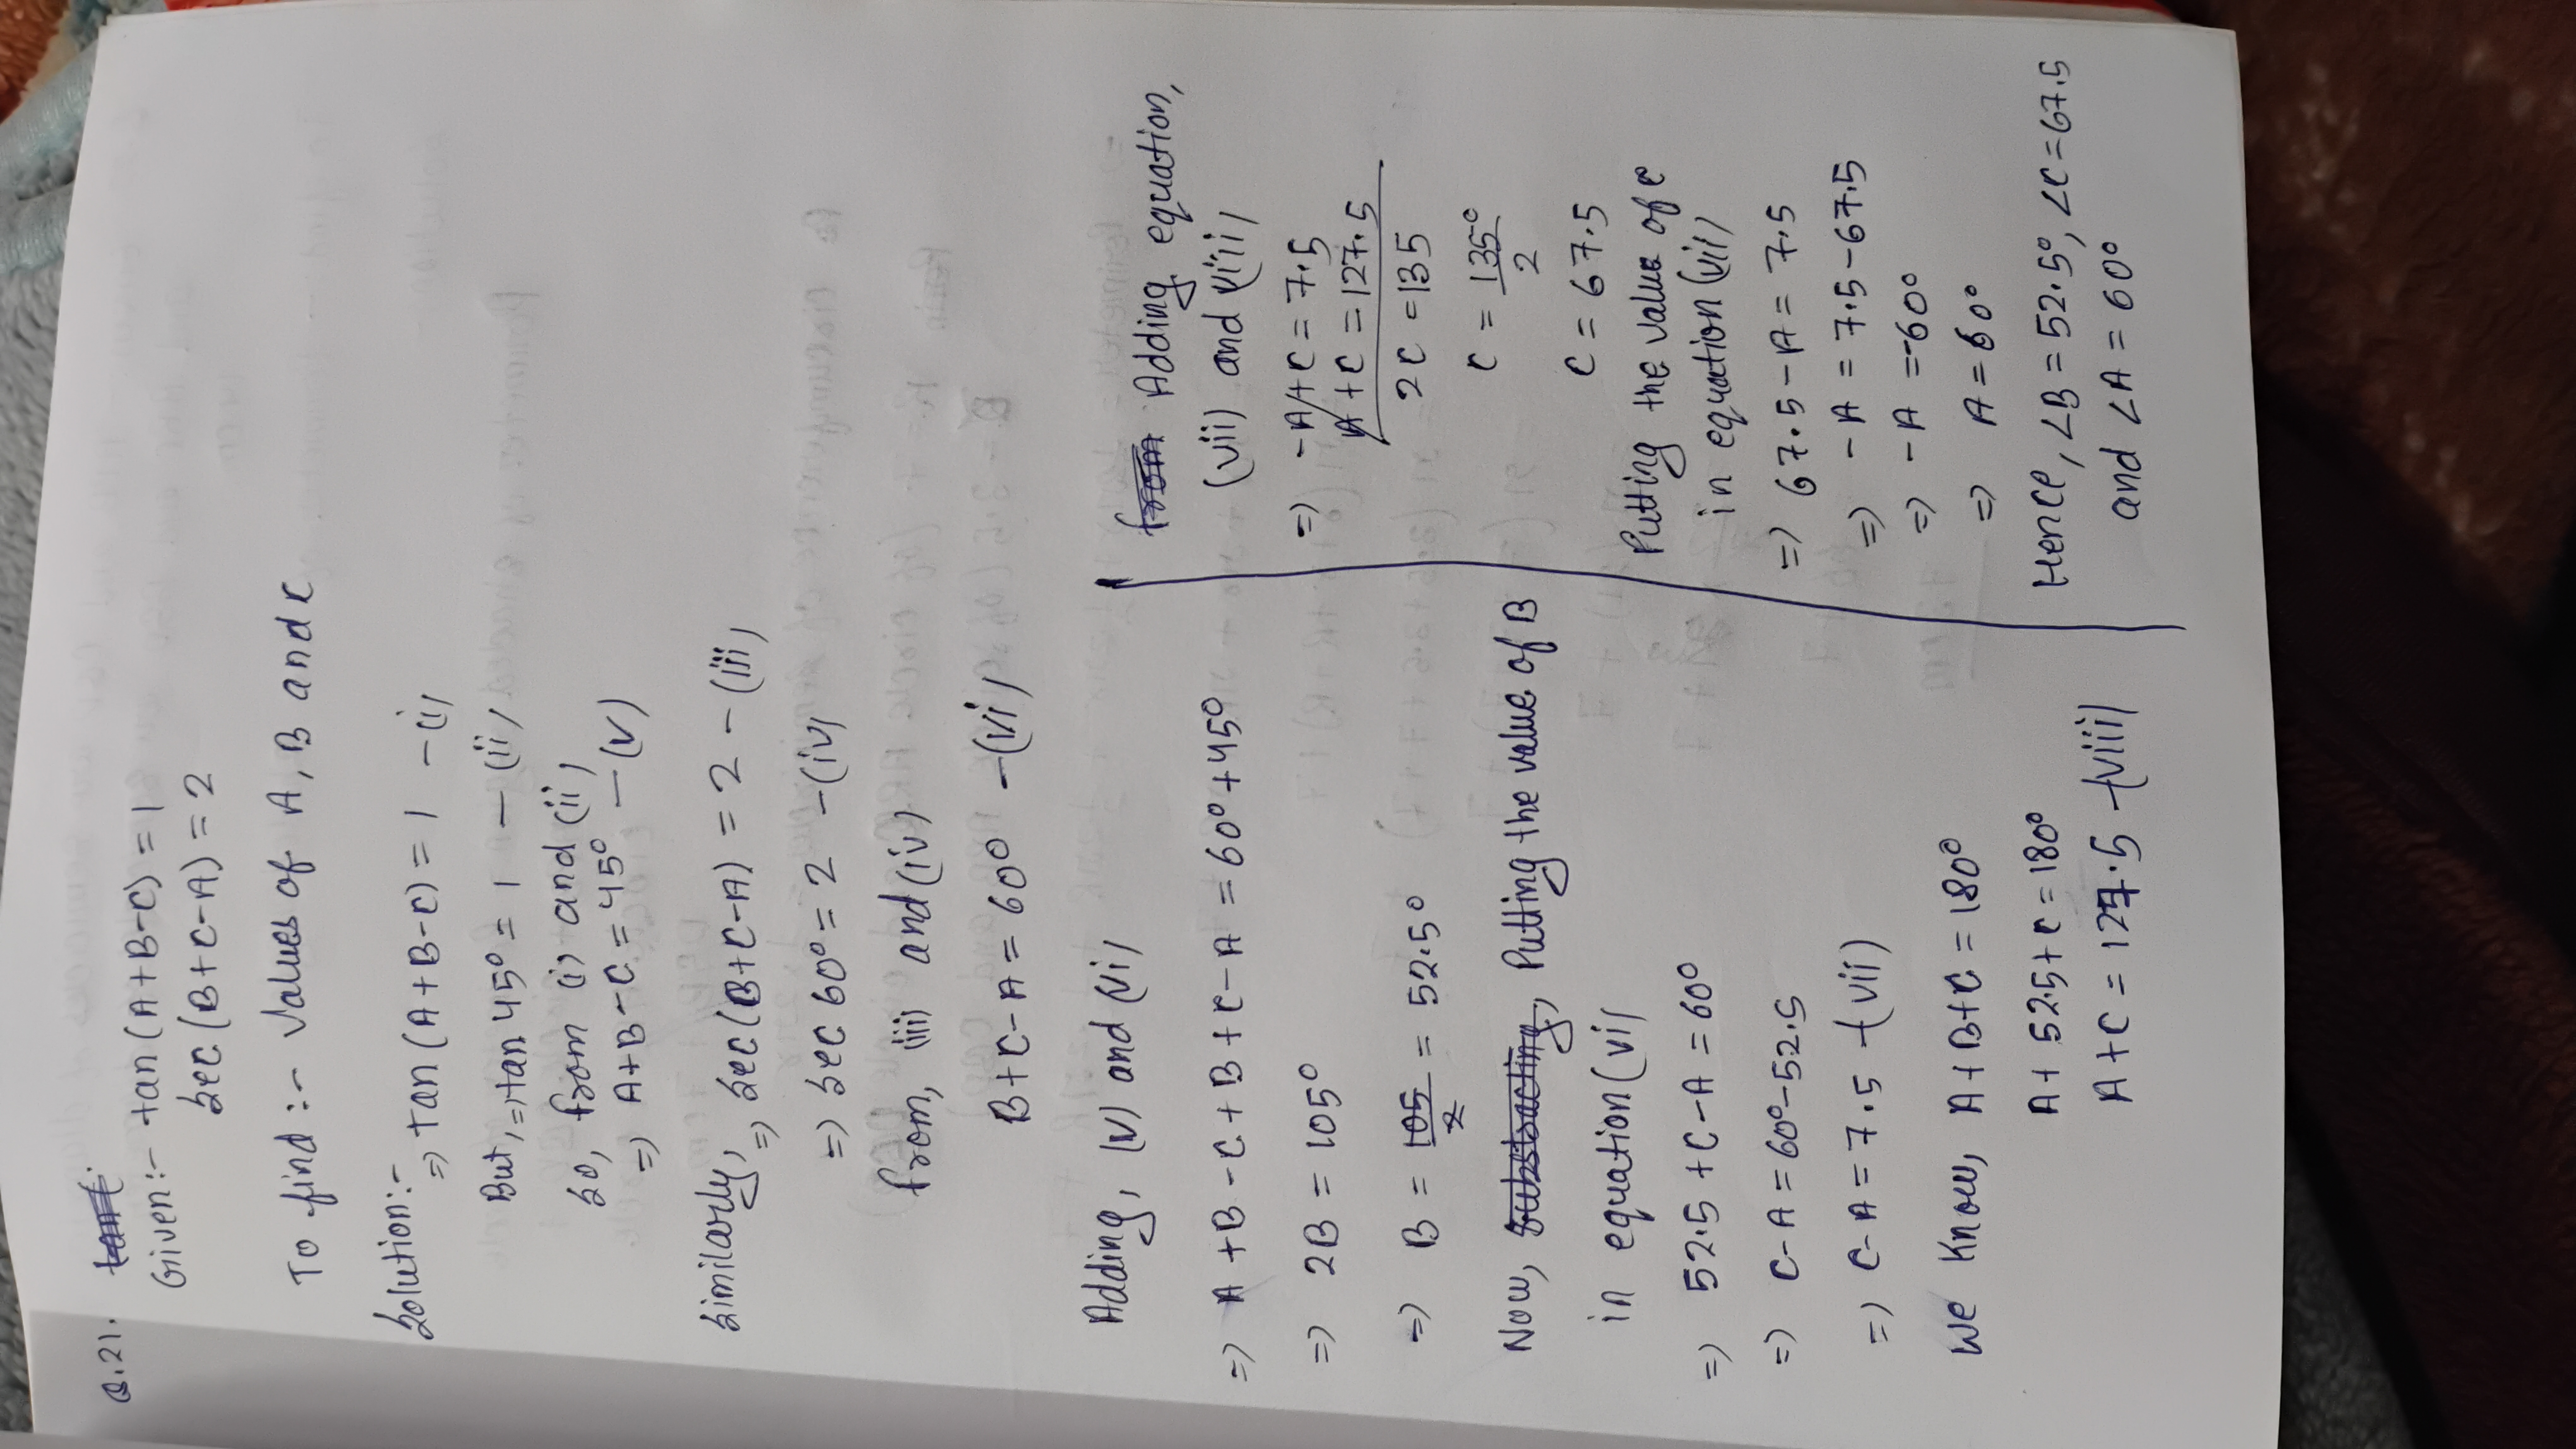 Q.21.
Given:- tan(A+B-C)=1
sec(B+C-A)=2
To find :- Values of A, B and C
Solution:-
=) tan(A+B-C)=1 -(i)
But, =) tan 45°=1 -(ii)
So, from (i) and (ii)
=) A+B-C=45° -(v)
Similarly,
=) sec(B+C-A)=2 -(iii)
=) sec 60°=2 -(iv)
from, (iii) and (iv)
B+C-A=60° -(vi)
Adding, (v) and (vi)
=) A+B-C+B+C-A=60°+45°
=) 2B=105°
=) B=105/2=52.5°
Now, Putting the value of B
in equation (vi)
=) 52.5+C-A=60°
=) C-A=60°-52.5
=) C-A=7.5 -(vii)
We Know, A+B+C=180°
A+52.5+C=180°
A+C=127.5 -(viii)
Adding equation,
(vii) and (viii)
=) -A+C=7.5
A+C=127.5
2C=135
C=135°/2
C=67.5
Putting the value of C
in equation (vii)
=) 67.5-A=7.5
=) -A=7.5-67.5
=) -A=-60°
=) A=60°
Hence, ∠B=52.5°, ∠C=67.5
and ∠A=60°